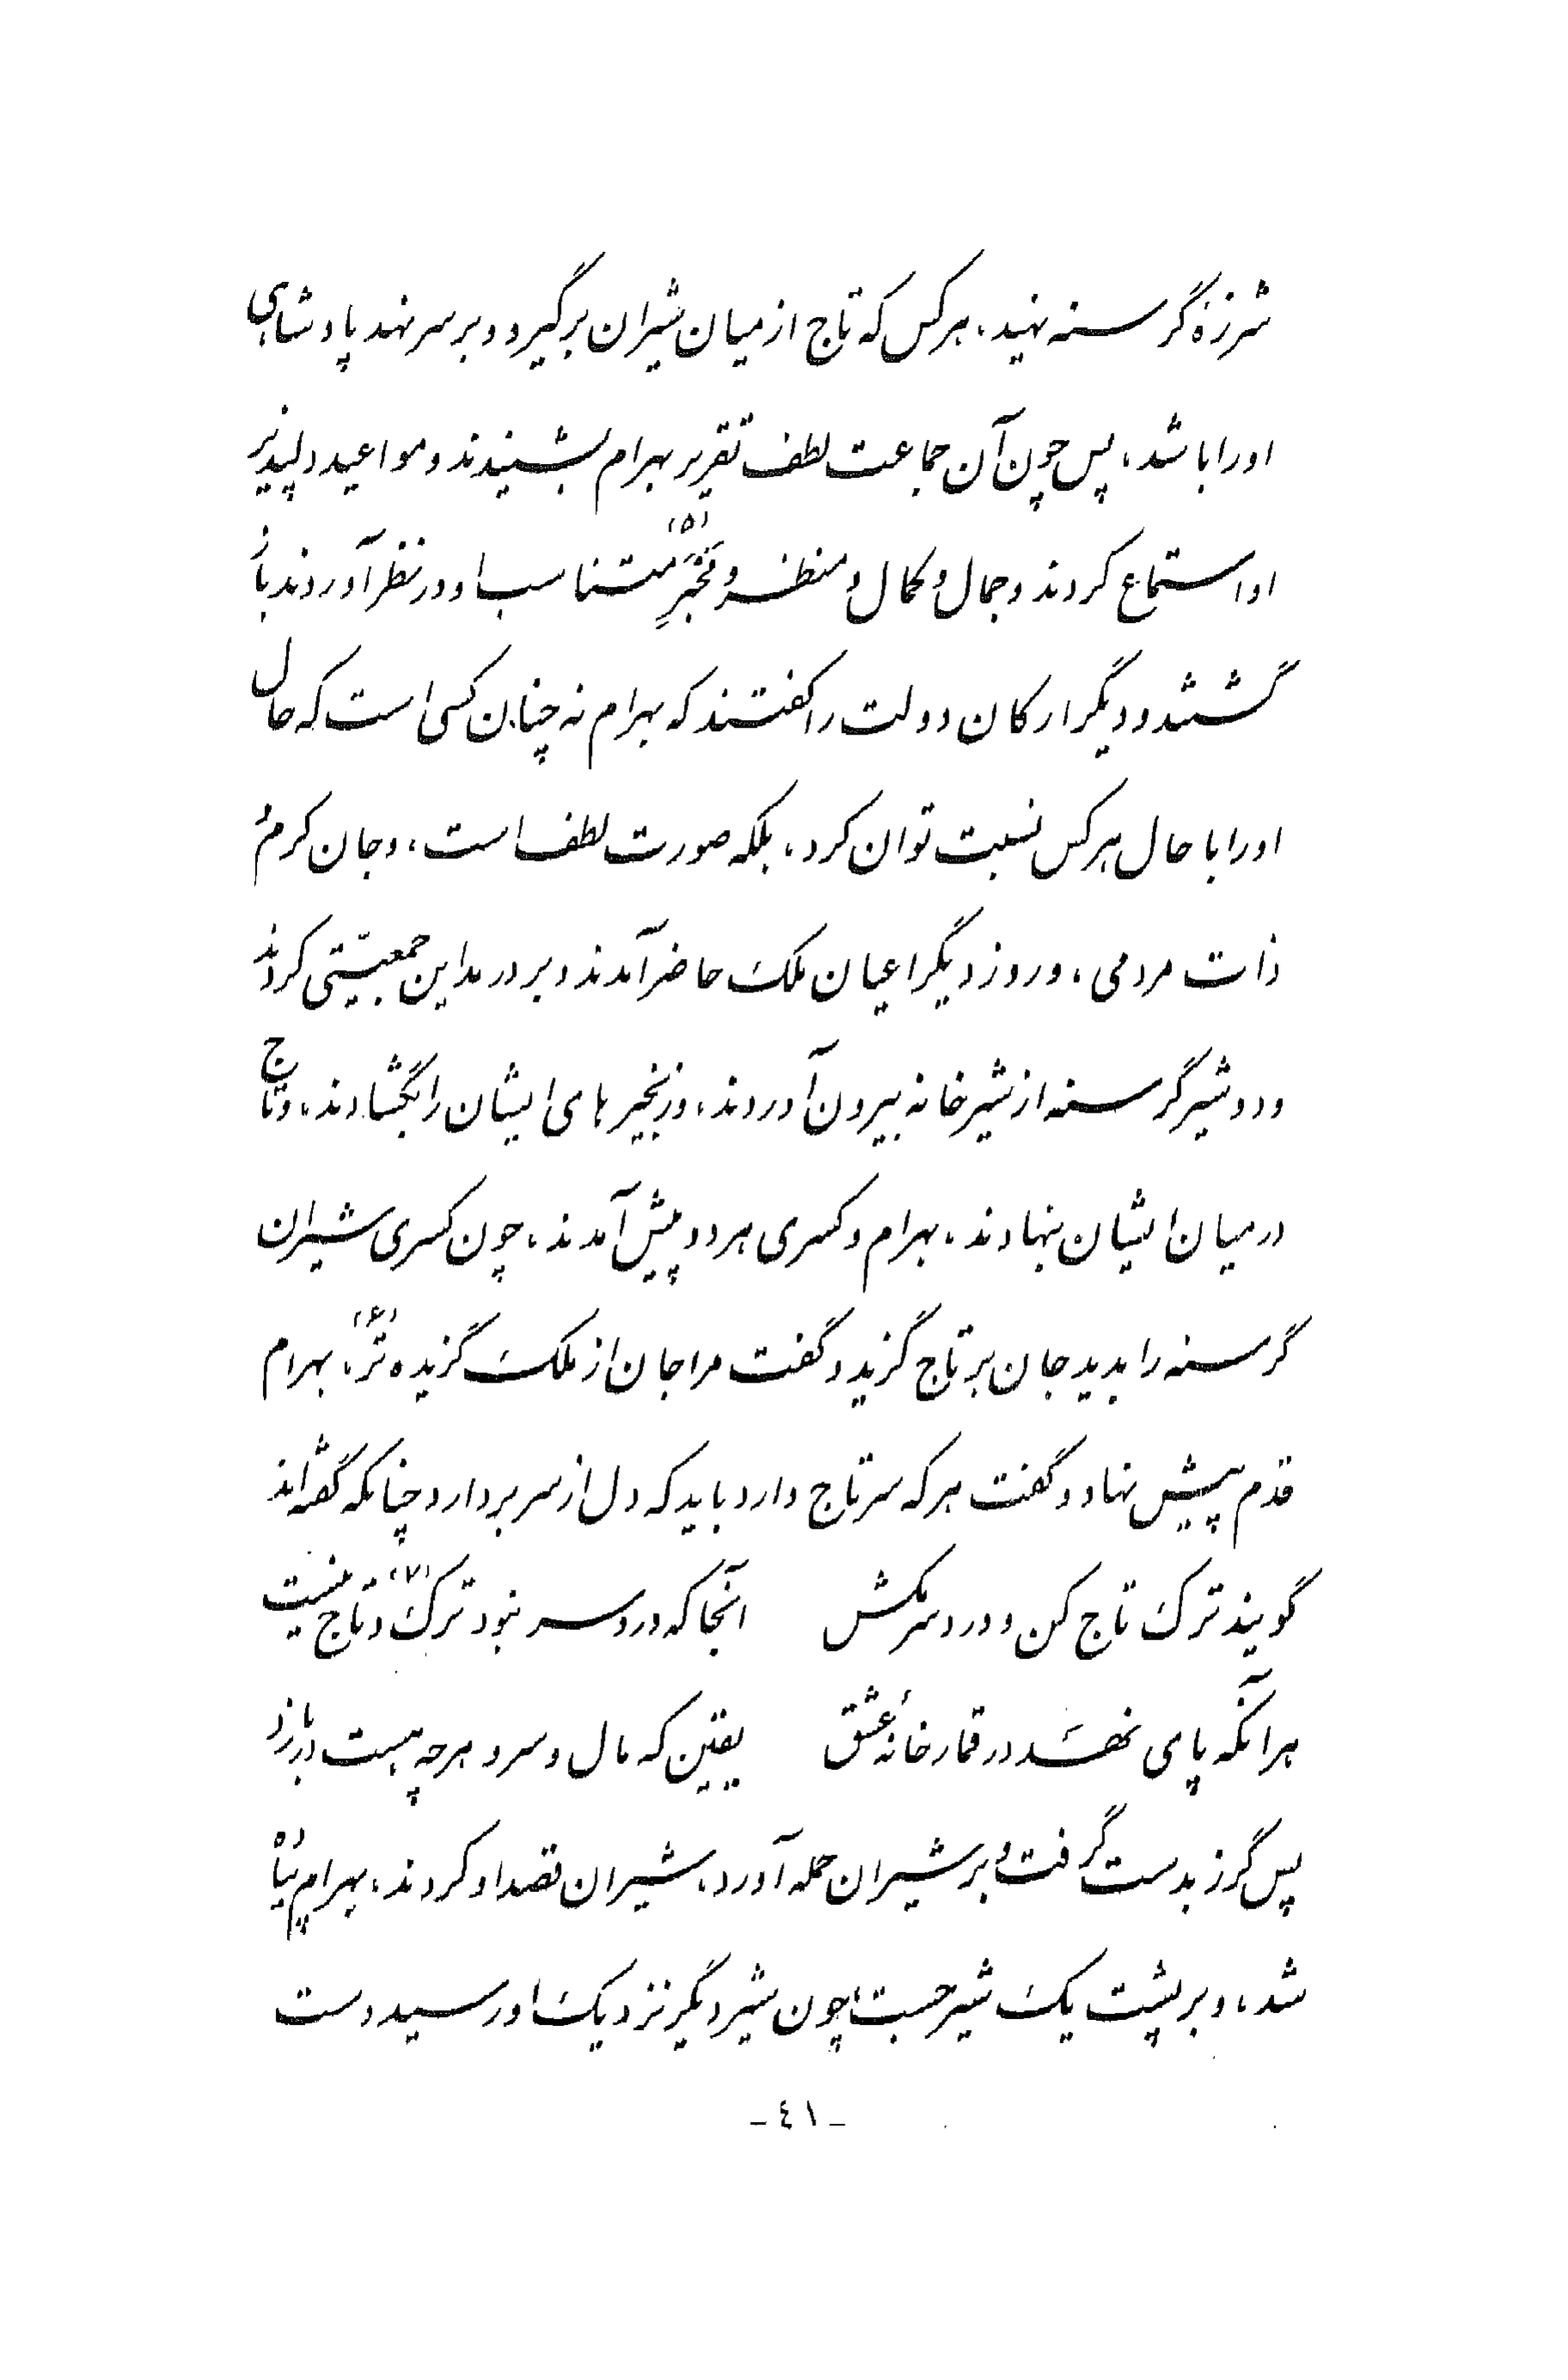 شرزهٔ گرسنه نهید، هر کس که تاج از میان شیران برگیرد و بر سر نهد پادشاهی
اورا باشد، پس چون آن جماعت لطف تقریر بهرام بشنیدند و مواعید دلپذیر
او استماع کردند و جمال و کمال و منظر و مَخْبَرِ (۵) متناسب او در نظر آوردند باز
گشتند و دیگر ارکان دولت را گفتند که بهرام نه چنان کسی است که حال
اورا با حال هر کس نسبت توان کرد، بلکه صورت لطف است، و جان کرم و
ذات مردمی، و روز دیگر اعیان ملک حاضر آمدند و بر در مداین جمعیّتی کردند
و دو شیر گرسنه از شیرخانه بیرون آوردند، و زنجیرهای ایشان را بگشادند، و تاج
در میان ایشان بنهادند، بهرام و کسری هر دو پیش آمدند، چون کسری شیران
گرسنه را بدید جان بر تاج گزید و گفت مرا جان از ملک گزیده تر (۶)، بهرام
قدم پیش نهاد و گفت هر که سر تاج دارد باید که دل از سر بردارد چنانکه گفته‌اند
گویند ترک تاج کن و درد سر مکش آنجا که درد سر نبود ترک (۷) و تاج نیست
هر آنکه پای نهد در قمارخانهٔ عشق یقین که مال و سر و هر چه هست دربازد
پس گرز بدست گرفت و بر شیران حمله آورد، شیران قصد او کردند، بهرام پیاده
شد، و بر پشت یک شیر جست چون شیر دیگر نزدیک او رسید دست
-٤١-